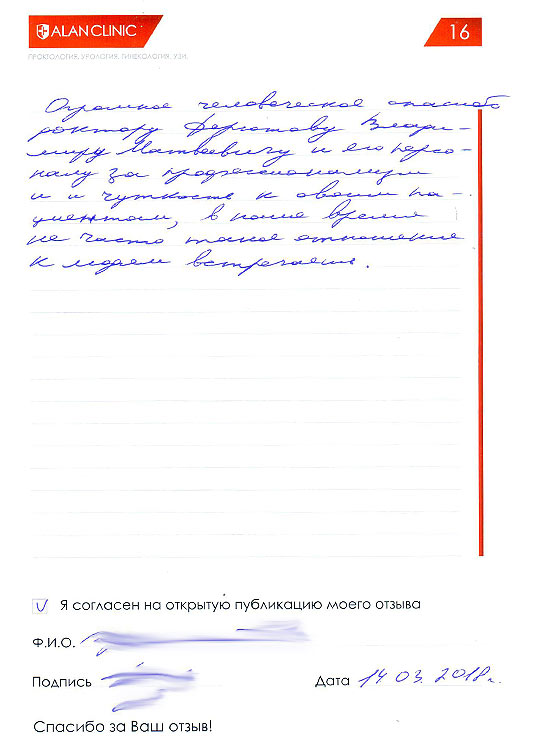 ALAN CLINIC
16
ПРОКТОЛОГИЯ, УРОЛОГИЯ, ГИНЕКОЛОГИЯ, УЗИ.
Огромное человеческое спасибо
доктору Влади-
миру Матвеевичу и его персо-
налу за профессионализм
и и чуткость к своим па-
циентам, в наше время
не часто такое отношение
к людям встречаешь.
Я согласен на открытую публикацию моего отзыва
Ф.И.О.
Подпись Дата 14 03. 2018 г.
Спасибо за Ваш отзыв!